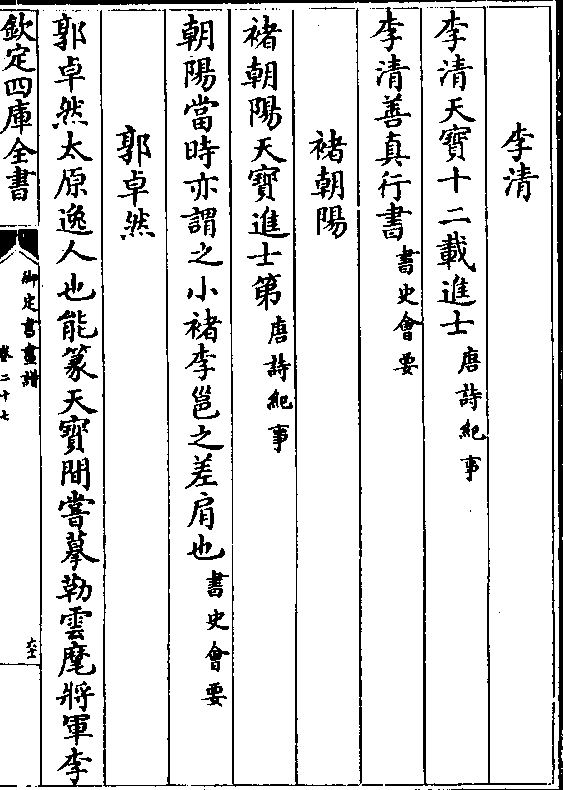 李清
李清天寶十二載進士唐詩紀事
李清善真行書書史會要
褚朝陽
褚朝陽天寶進士第唐詩紀事
朝陽當時亦謂之小褚李邕之差肩也書史會要
郭卓然
郭卓然太原逸人也能篆天寶間嘗摹勒雲麾將軍李
欽定四庫全書
御定書畫譜
卷二十七